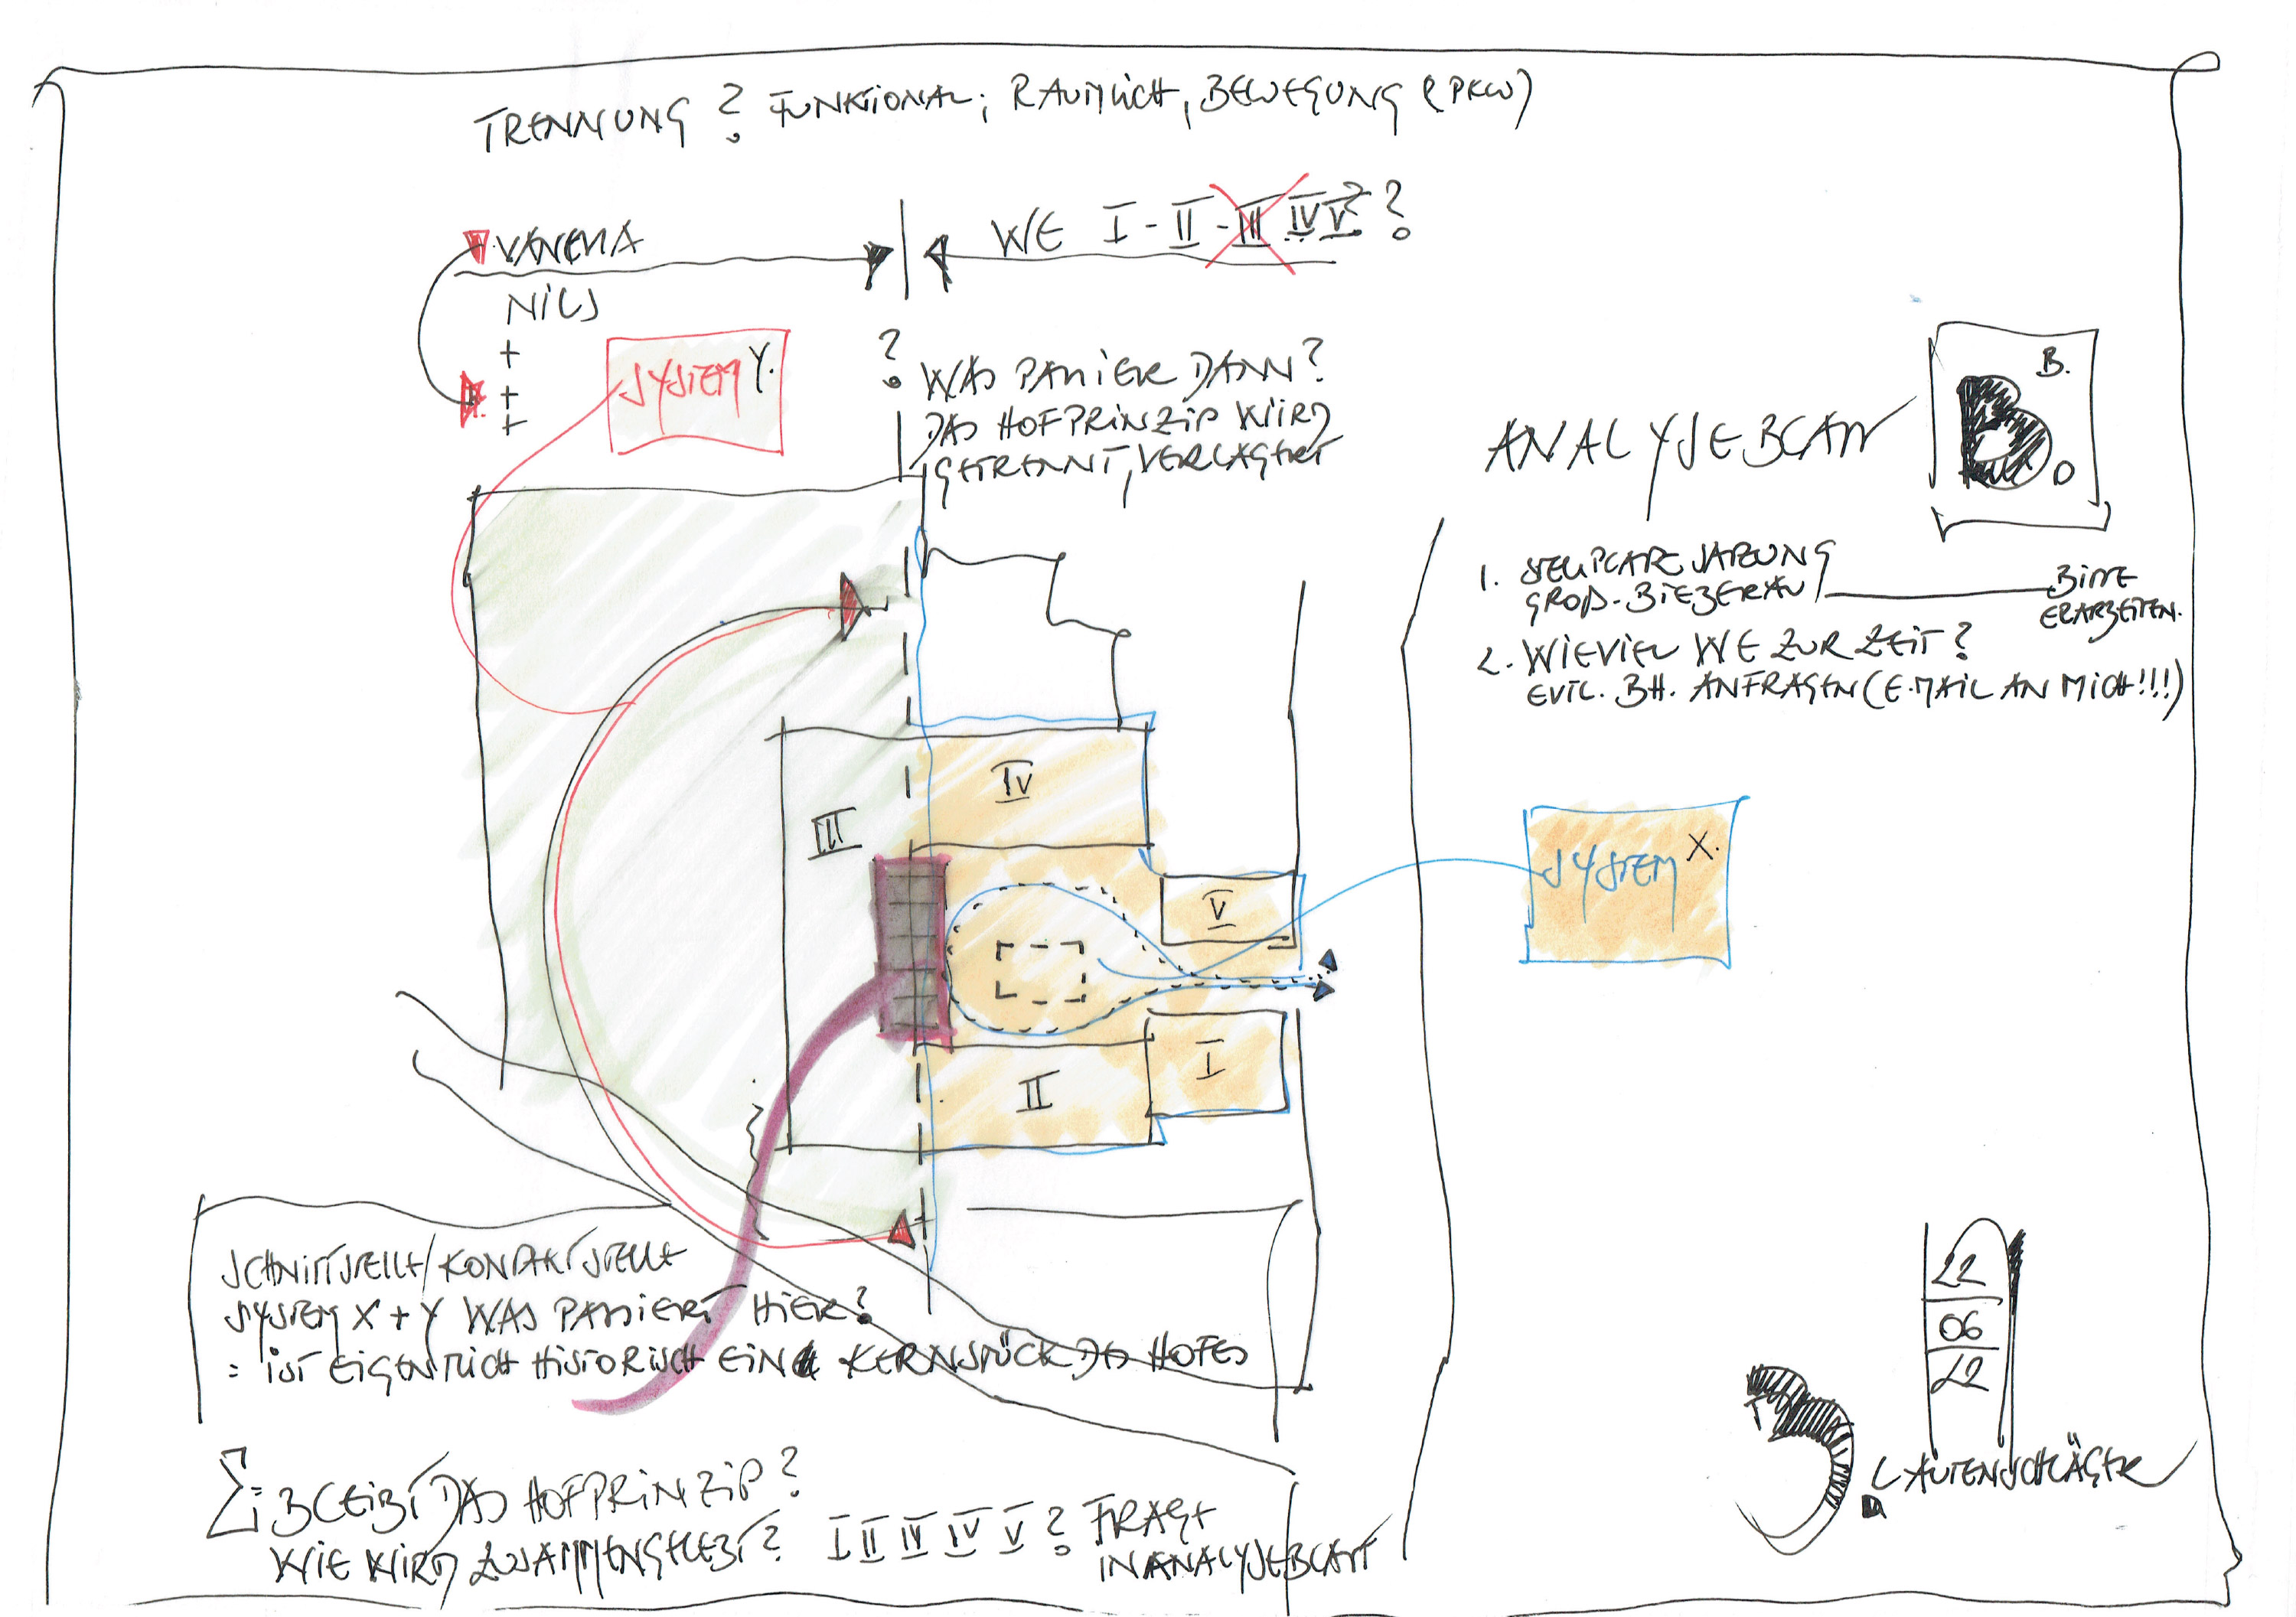 TRENNUNG ? FUNKTIONAL, RÄUMLICH, BEWEGUNG (PKW)
VANEMA
WE I - II - III IV V? ?
NILS
+
+
+
SYSTEM Y.
?
WAS PASSIERT DANN?
DAS HOFPRINZIP WIRD
GETRENNT, VERLAGERT
ANALYSEBLATT
B.
B
D
1. STELLPLATZSATZUNG
GROß-BIEBERAU
BITTE
ERARBEITEN.
2. WIEVIEL WE ZUR ZEIT?
EVTL. BH. ANFRAGEN (E-MAIL AN MICH!!!)
IV
III
V
SYSTEM X.
I
II
SCHNITTSTELLE/KONTAKTSTELLE
SYSTEM X + Y WAS PASSIERT HIER?
= IST EIGENTLICH HISTORISCH EIN KERNSTÜCK DES HOFES
22
06
22
LAUTENSCHLÄGER
Σ: BLEIBT DAS HOFPRINZIP?
WIE WIRD ZUSAMMENGELEBT? I II III IV V ? FRAGE
IN ANALYSEBLATT